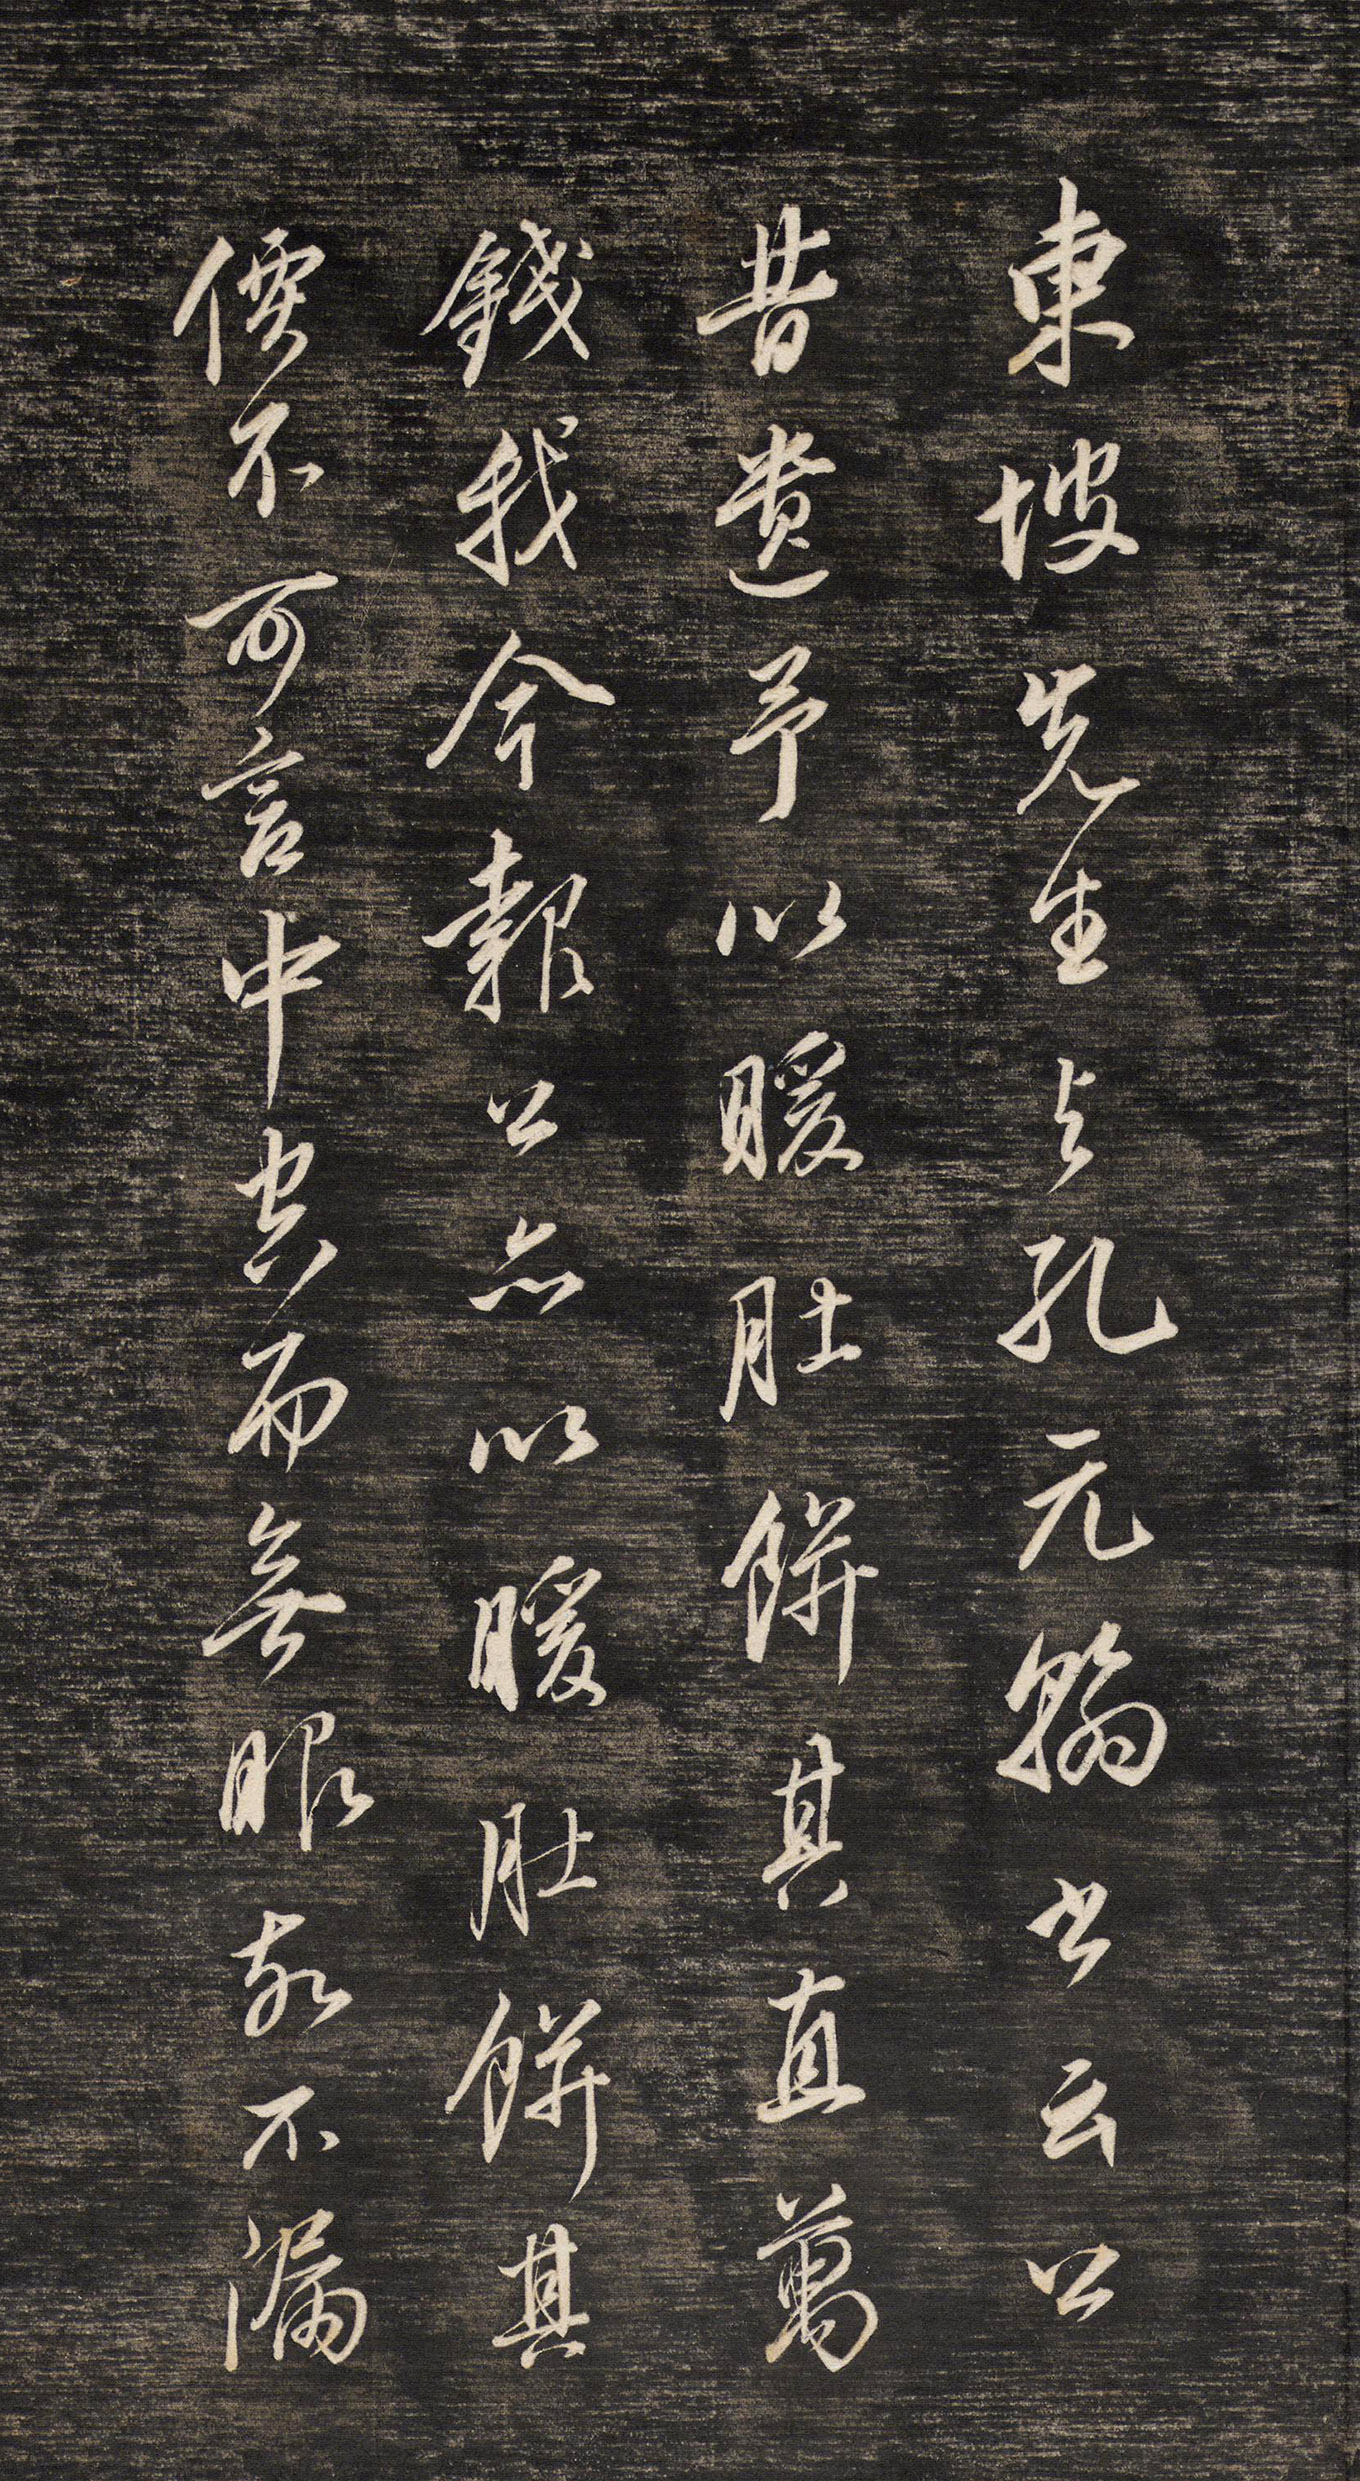 東坡先生与孔元翰書云公
昔遺予以暖肚餅其直萬
錢我今報公亦以暖肚餅其
價不可言中空而無眼故不漏